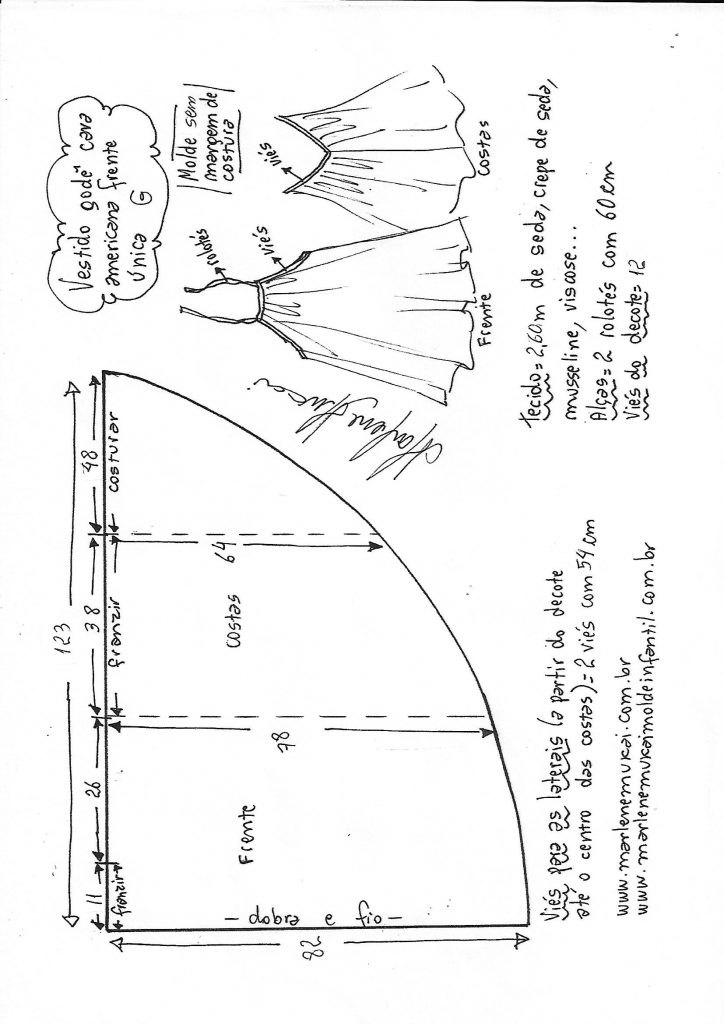 Vestido godê cava
americana frente
única G
Molde sem
margem de
costura
rolotês
viés
Frente
viés
Costas
123
11
26
38
48
franzir
franzir
costurar
64
78
82
costas
Frente
- dobra e fio -
Tecido = 2,60m de seda, crepe de seda,
musseline, viscose...
Alças = 2 rolotés com 60 cm
Viés do decote = 12
Viés para as laterais (a partir do decote
até o centro das costas) = 2 viés com 54 cm
www.marlenemukai.com.br
www.marlenemukaimoldeinfantil.com.br